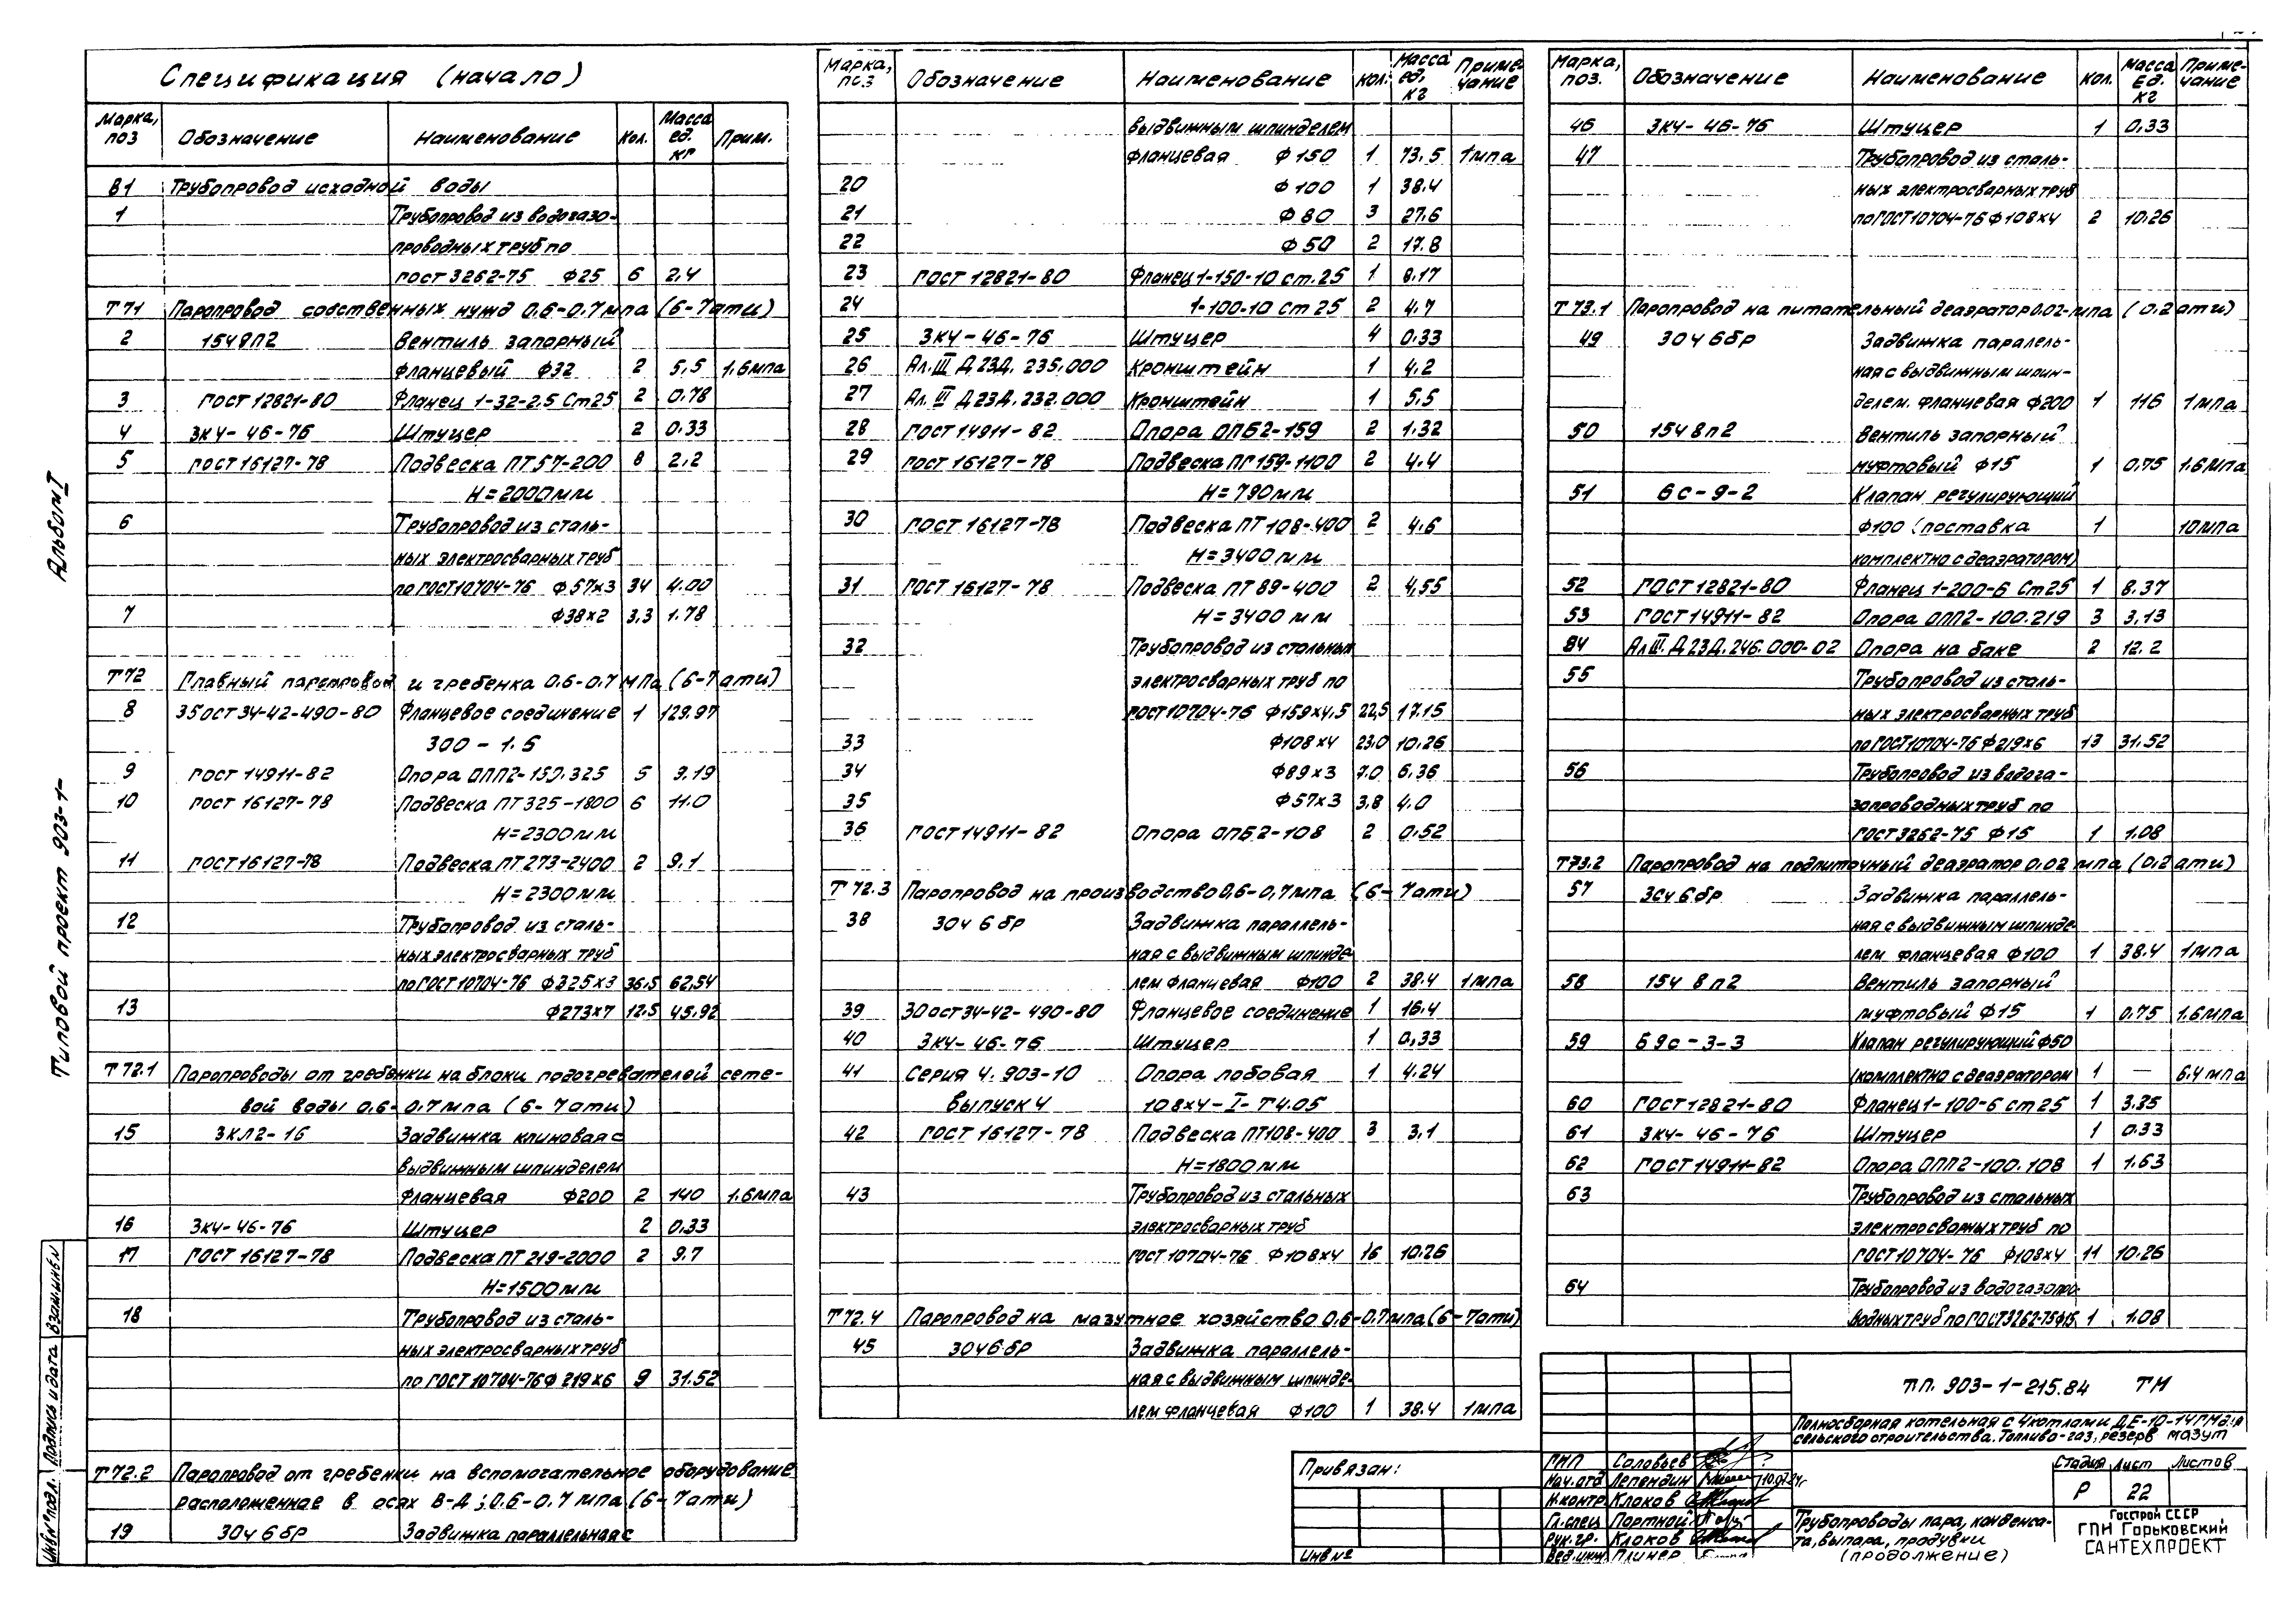 Спецификация (начало)
Марка, поз Обозначение Наименование Кол. Масса ед. кг Прим.
В1 Трубопровод исходной воды
1 Трубопровод из водогазо-
проводных труб по
ГОСТ 3262-75 Ф25 6 2,4
Т71 Паропровод собственных нужд 0.6-0.7 мпа (6-7 ати)
2 15ч9п2 Вентиль запорный
фланцевый Ф32 2 5,5 1,6мпа
3 ГОСТ 12821-80 Фланец 1-32-2.5 Ст25 2 0.78
4 ЗК4-46-76 Штуцер 2 0.33
5 ГОСТ 16127-78 Подвеска ПТ57-200 8 2,2
Н=2000мм
6 Трубопровод из сталь-
ных электросварных труб
по ГОСТ10704-76 Ф57х3 34 4.00
7 Ф38х2 3,3 1.78
Т72 Главный паропровод и гребенка 0.6-0.7 мпа (6-7 ати)
8 35 ОСТ 34-42-490-80 Фланцевое соединение 1 129.97
300-1.6
9 ГОСТ 14911-82 Опора ОПП2-150.325 5 9.19
10 ГОСТ 16127-78 Подвеска ПТ325-1800 6 11.0
Н=2300мм
11 ГОСТ16127-78 Подвеска ПТ273-2400 2 9,1
Н=2300мм
12 Трубопровод из сталь-
ных электросварных труб
по ГОСТ 10704-76 Ф325х3 36,5 62,54
13 Ф273х7 12.5 45.92
Т72.1 Паропроводы от гребенки на блоки подогревателей сете-
вой воды 0.6-0.7 мпа (6-7 ати)
15 ЗКЛ2-16 Задвижка клиновая с
выдвижным шпинделем
фланцевая Ф200 2 140 1.6мпа
16 ЗК4-46-76 Штуцер 2 0.33
17 ГОСТ 16127-78 Подвеска ПТ 219-2000 2 9.7
Н=1500мм
18 Трубопровод из сталь-
ных электросварных труб
по ГОСТ 10704-76Ф 219х6 9 31.52
Т72.2 Паропровод от гребенки на вспомогательное оборудование
расположенное в осях В-Д; 0.6-0.7 мпа (6-7 ати)
19 30ч 6 бр Задвижка параллельная с
Марка, поз Обозначение Наименование кол. Масса ед. кг Примечание
выдвижным шпинделем
фланцевая Ф150 1 73,5 1мпа
20 Ф100 1 38.4
21 Ф80 3 27.6
22 Ф50 2 17.8
23 ГОСТ 12821-80 Фланец 1-150-10 ст.25 1 8.17
24 1-100-10 Ст 25 2 4,7
25 ЗК4-46-76 Штуцер 4 0.33
26 Ал.III Д 23Д. 235.000 Кронштейн 1 4.2
27 Ал. III Д23Д. 232.000 Кронштейн 1 5.5
28 ГОСТ 14911-82 Опора ОПБ2-159 2 1.32
29 ГОСТ 16127-78 Подвеска ПГ 159-1100 2 4.4
Н=790мм
30 ГОСТ 16127-78 Подвеска ПТ 108-400 2 4,6
Н=3400мм
31 ГОСТ 16127-78 Подвеска ПТ 89-400 2 4,55
Н=3400 мм
32 Трубопровод из стальных
электросварных труб по
ГОСТ10704-76 Ф159х4,5 22,5 17.15
33 Ф108х4 23.0 10.26
34 Ф89х3 7.0 6,36
35 Ф57х3 3,8 4.0
36 ГОСТ14911-82 Опора ОПБ2-108 2 0.52
Т72.3 Паропровод на производство 0,6-0,7 мпа (6-7ати)
38 30ч 6 бр Задвижка параллель-
ная с выдвижным шпинде-
лем фланцевая Ф100 2 38.4 1мпа
39 30 ОСТ34-42-490-80 Фланцевое соединение 1 16.4
40 ЗК4-46-76 Штуцер 1 0,33
41 Серия 4.903-10 Опора лобовая 1 4.24
выпуск 4 108х4-I-Т4.05
42 ГОСТ 16127-78 Подвеска ПТ108-400 3 3,1
Н=1800мм
43 Трубопровод из стальных
электросварных труб
ГОСТ 10704-76 Ф108х4 16 10.26
Т72.4 Паропровод на мазутное хозяйство 0.6-0.7мпа(6-7ати)
45 30ч6бр Задвижка параллель-
ная с выдвижным шпинде-
лем фланцевая Ф100 1 38.4 1мпа
Марка, поз. Обозначение Наименование Кол. Масса Ед. кг Примечание
46 ЗК4-46-76 Штуцер 1 0.33
47 Трубопровод из сталь-
ных электросварных труб
по ГОСТ10704-76 Ф108х4 2 10.26
Т73.1 Паропровод на питательный деаэратор 0.02-мпа (0.2 ати)
49 30ч 6бр Задвижка паралель-
ная с выдвижным шпин-
делем. фланцевая Ф200 1 116 1мпа
50 15ч 8п2 Вентиль запорный
муфтовый Ф15 1 0.75 1.6мпа
51 6с-9-2 Клапан регулирующий
Ф100 (поставка 1 10мпа
комплектно с деаэратором)
52 ГОСТ 12821-80 Фланец 1-200-6 Ст25 1 8.37
53 ГОСТ 14911-82 Опора ОПП2-100.219 3 3,13
84 Ал III. Д 23Д. 246.000-02 Опора на баке 2 12.2
55 Трубопровод из сталь-
ных электросварных труб
по ГОСТ10704-76 Ф219х6 13 31.52
56 Трубопровод из водога-
зопроводных труб по
ГОСТ3262-75 Ф15 1 1.08
Т73.2 Паропровод на подпиточный деаэратор 0.02 мпа (0.2 ати)
57 30ч 6 бр Задвижка параллель-
ная с выдвижным шпинде-
лем фланцевая Ф100 1 38.4 1мпа
58 15ч 8 п2 Вентиль запорный
муфтовый Ф15 1 0.75 1.6мпа
59 69с-3-3 Клапан регулирующий Ф50
(комплектно с деаэратором 1 — 6.4 мпа
60 ГОСТ 12821-80 Фланец 1-100-6 ст25 1 3.35
61 ЗК4-46-76 Штуцер 1 0.33
62 ГОСТ 14911-82 Опора ОПП2-100.108 1 1.63
63 Трубопровод из стальных
электросварных труб по
ГОСТ10704-76 Ф108х4 11 10.26
64 Трубопровод из водогазопро-
водных труб по ГОСТ3262-75Ф15 1 1.08
Т.П. 903-1-215.84 ТМ
Полносборная котельная с 4 котлами ДЕ-10-14ГМ для
сельского строительства. Топливо-газ, резерв мазут
Стадия Лист Листов
Р 22
Трубопроводы пара, конденса-
та, выпара, продувки
(продолжение)
Госстрой СССР
ГПИ Горьковский
САНТЕХПРОЕКТ
Привязан:
Инв №
ГИП Соловьев
Нач.отд Лепендин
Н.контр Клоков
Гл.спец Портной
Рук.гр. Клоков
Вед.инж Плинер
Альбом I
Типовой проект 903-1-
Взам.инв N
Подпись и дата
Инв № подл.